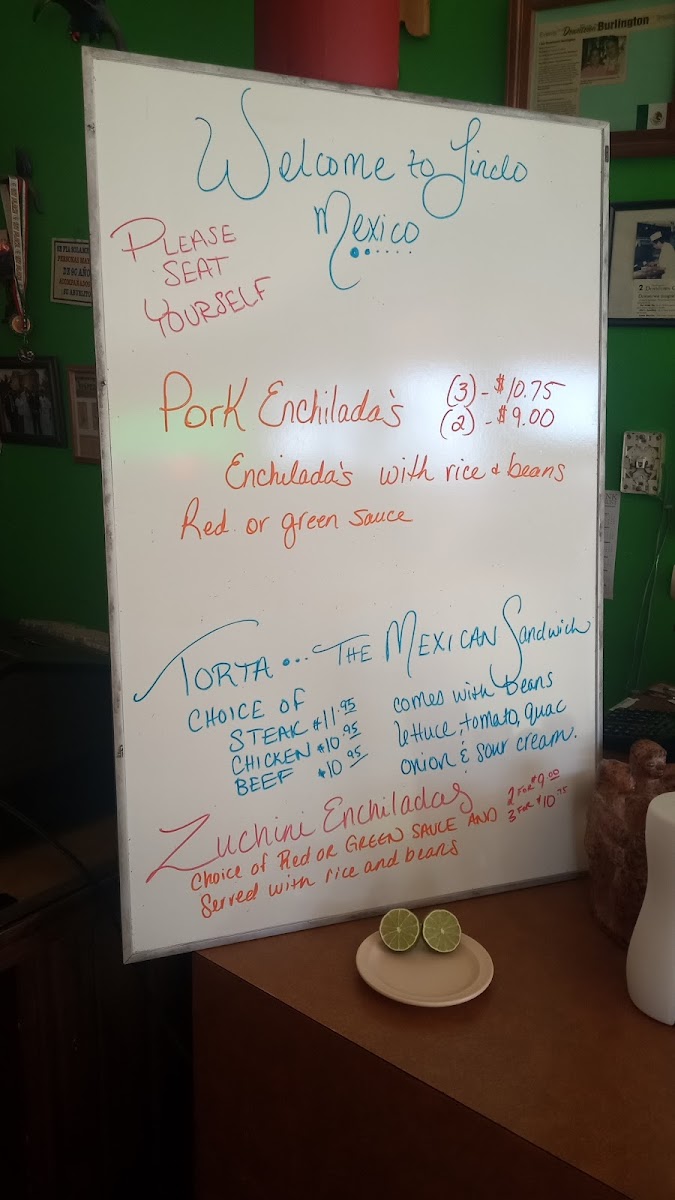 Welcome to Lindo
Mexico
PLEASE
SEAT
YOURSELF
Pork Enchilada's (3) - $10.75
(2) - $9.00
Enchilada's with rice & beans
Red or green sauce
TORTA... THE MEXICAN Sandwich
CHOICE OF
STEAK $11.95
CHICKEN $10.95
BEEF $10.95
comes with beans
lettuce, tomato, guac
onion & sour cream.
Zuchini Enchiladas
Choice of Red OR GREEN SAUCE AND
Served with rice and beans
2 FOR $9.00
3 FOR $10.75
Downtown Burlington
PERSONAS
DE 90 AÑOS